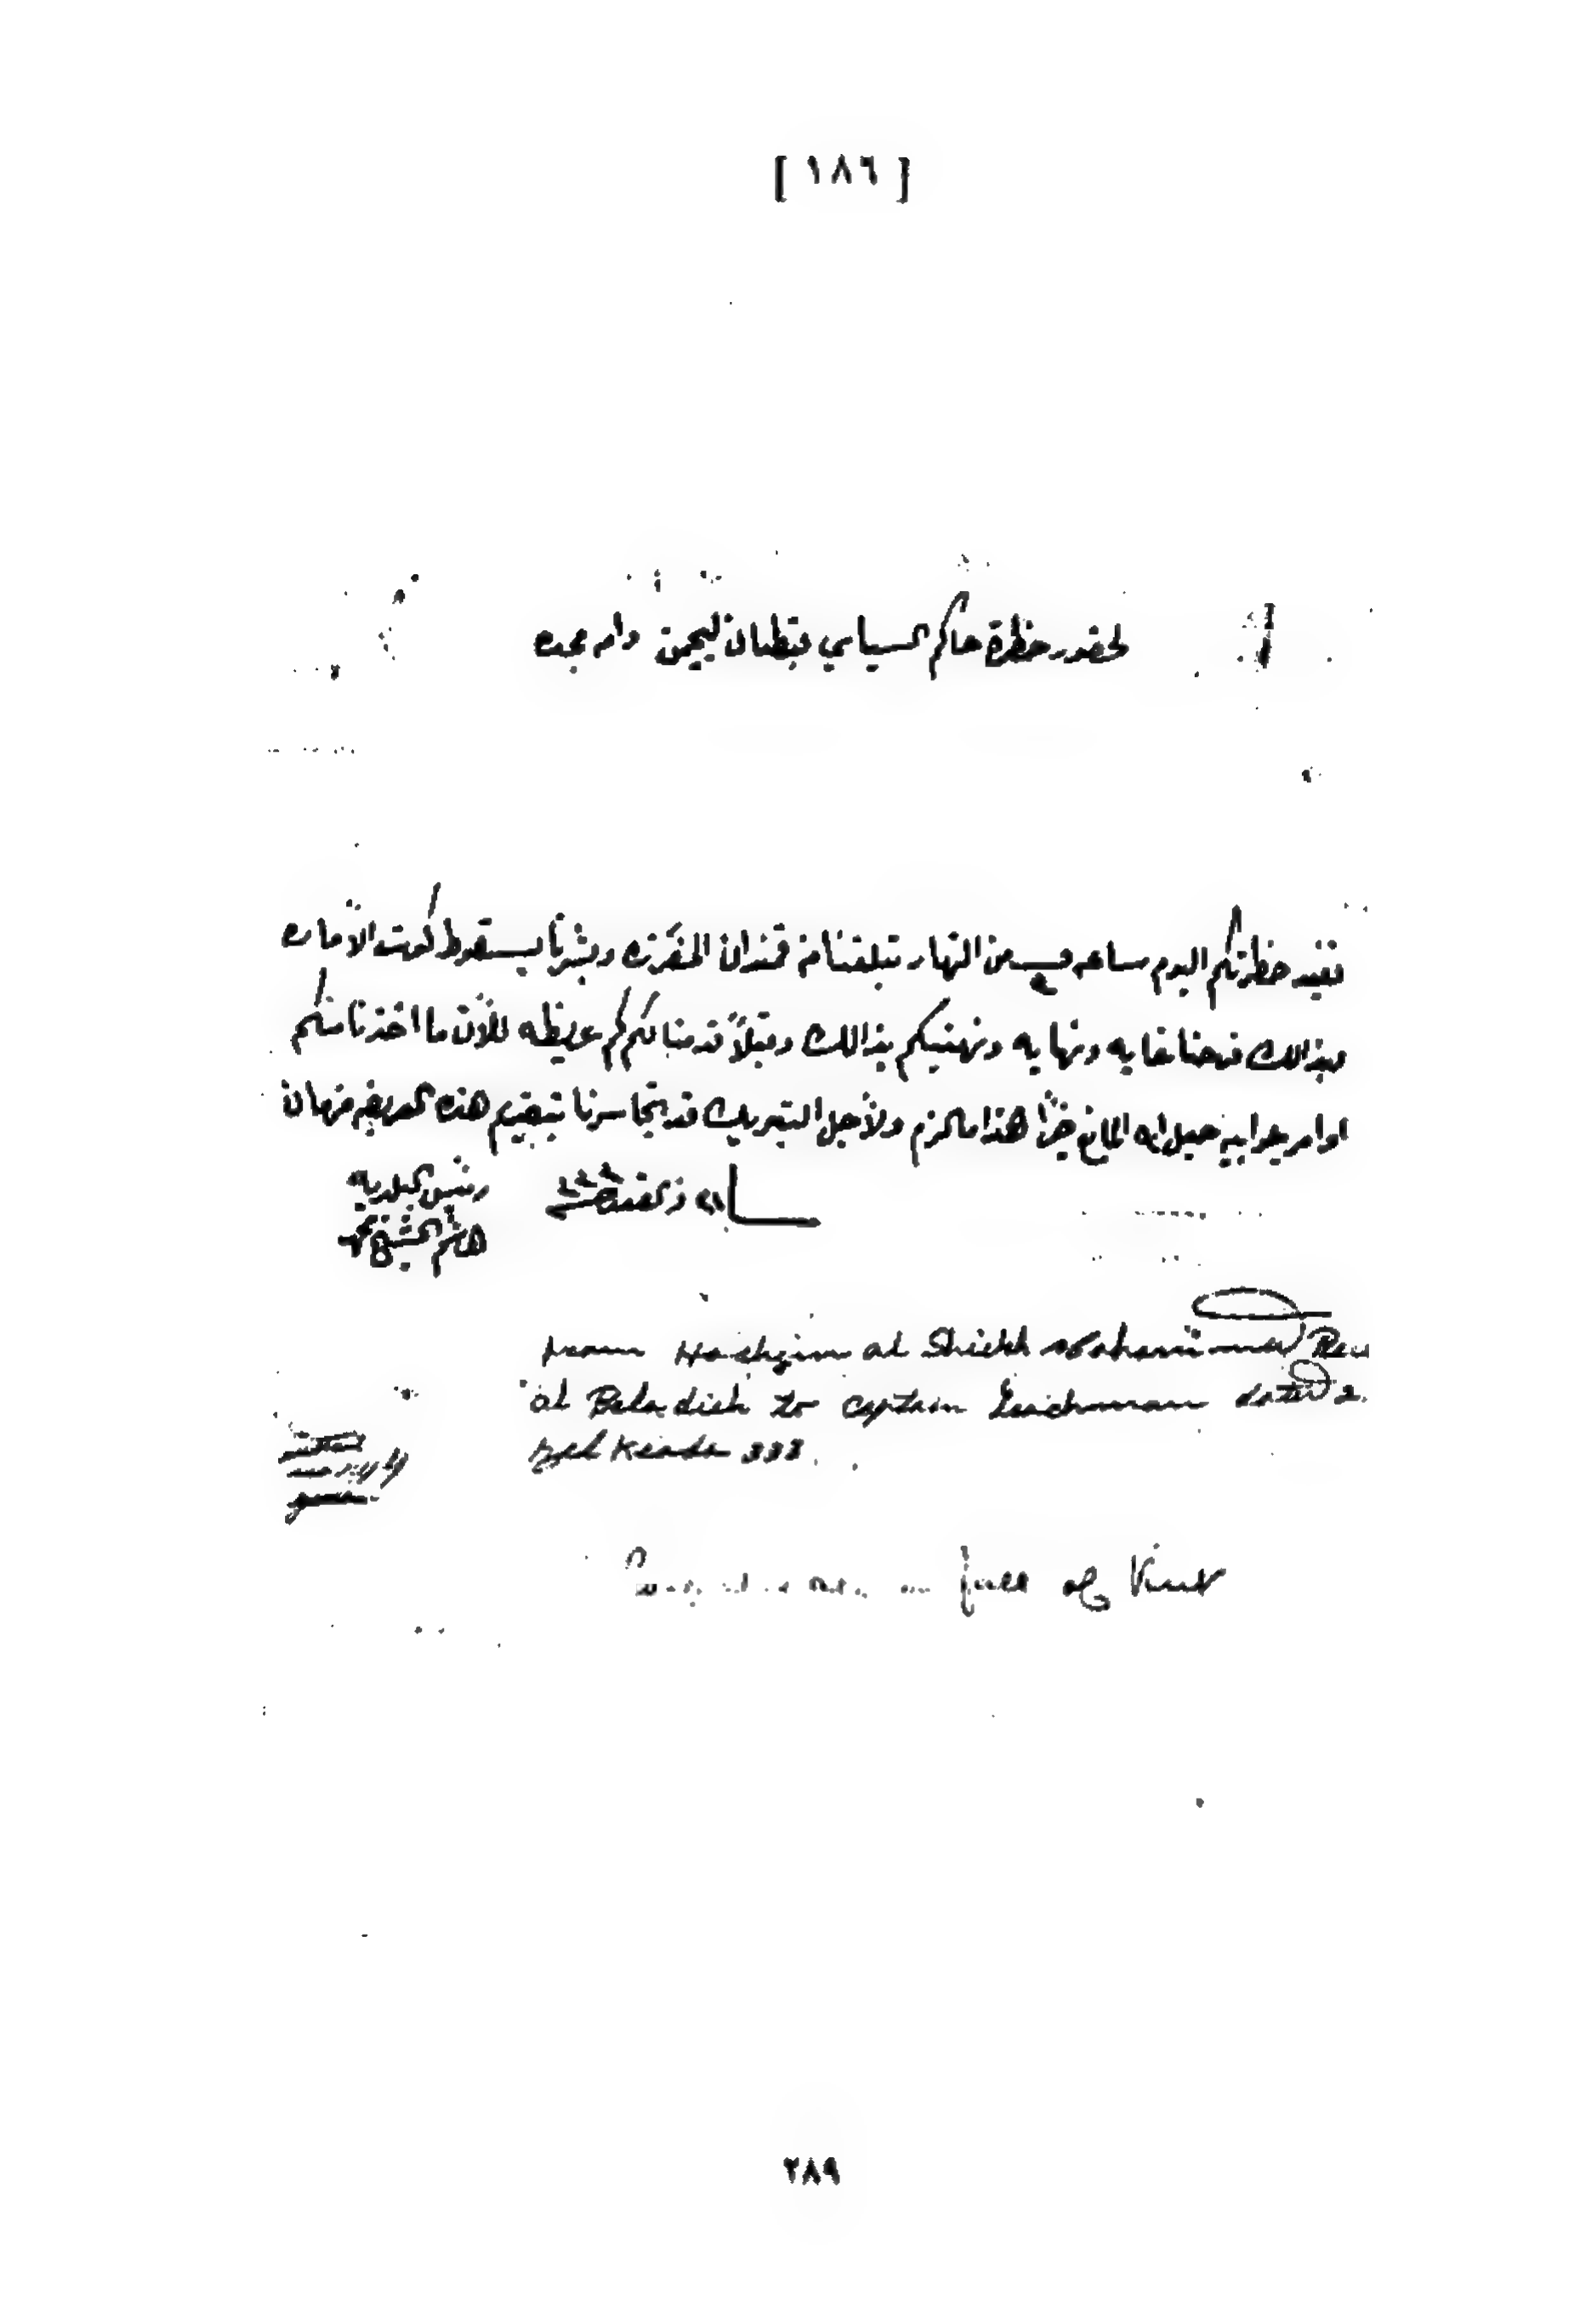 [ ١٨٦ ]
لحضور حظرة حاكم السياسي قبطان ليجمن دام مجده
نفيد حظرتكم اليوم ساعه من النهار تبلغنا من قمندان وبشرنا بسقوط كوت الاماره
وبذالك فرحنا غايه ونهايه ونهنيكم بذالك وقبلاً قدمنا لكم عليظه للآن ما اخذنا منكم
اوامر جوابيه جعل الله المانع خيراً هذا مالزم ولاجل التبريك قد تجاسرنا بتقديم هذه العريضه
رئيس البلديه
هاشم الشيخ محمد
from Hashgim al Shiekh Mohammad Reis
al Beladieh to Captain Leichman dated 2
Zel Keade 333.
fall of Kut
٢٨٩